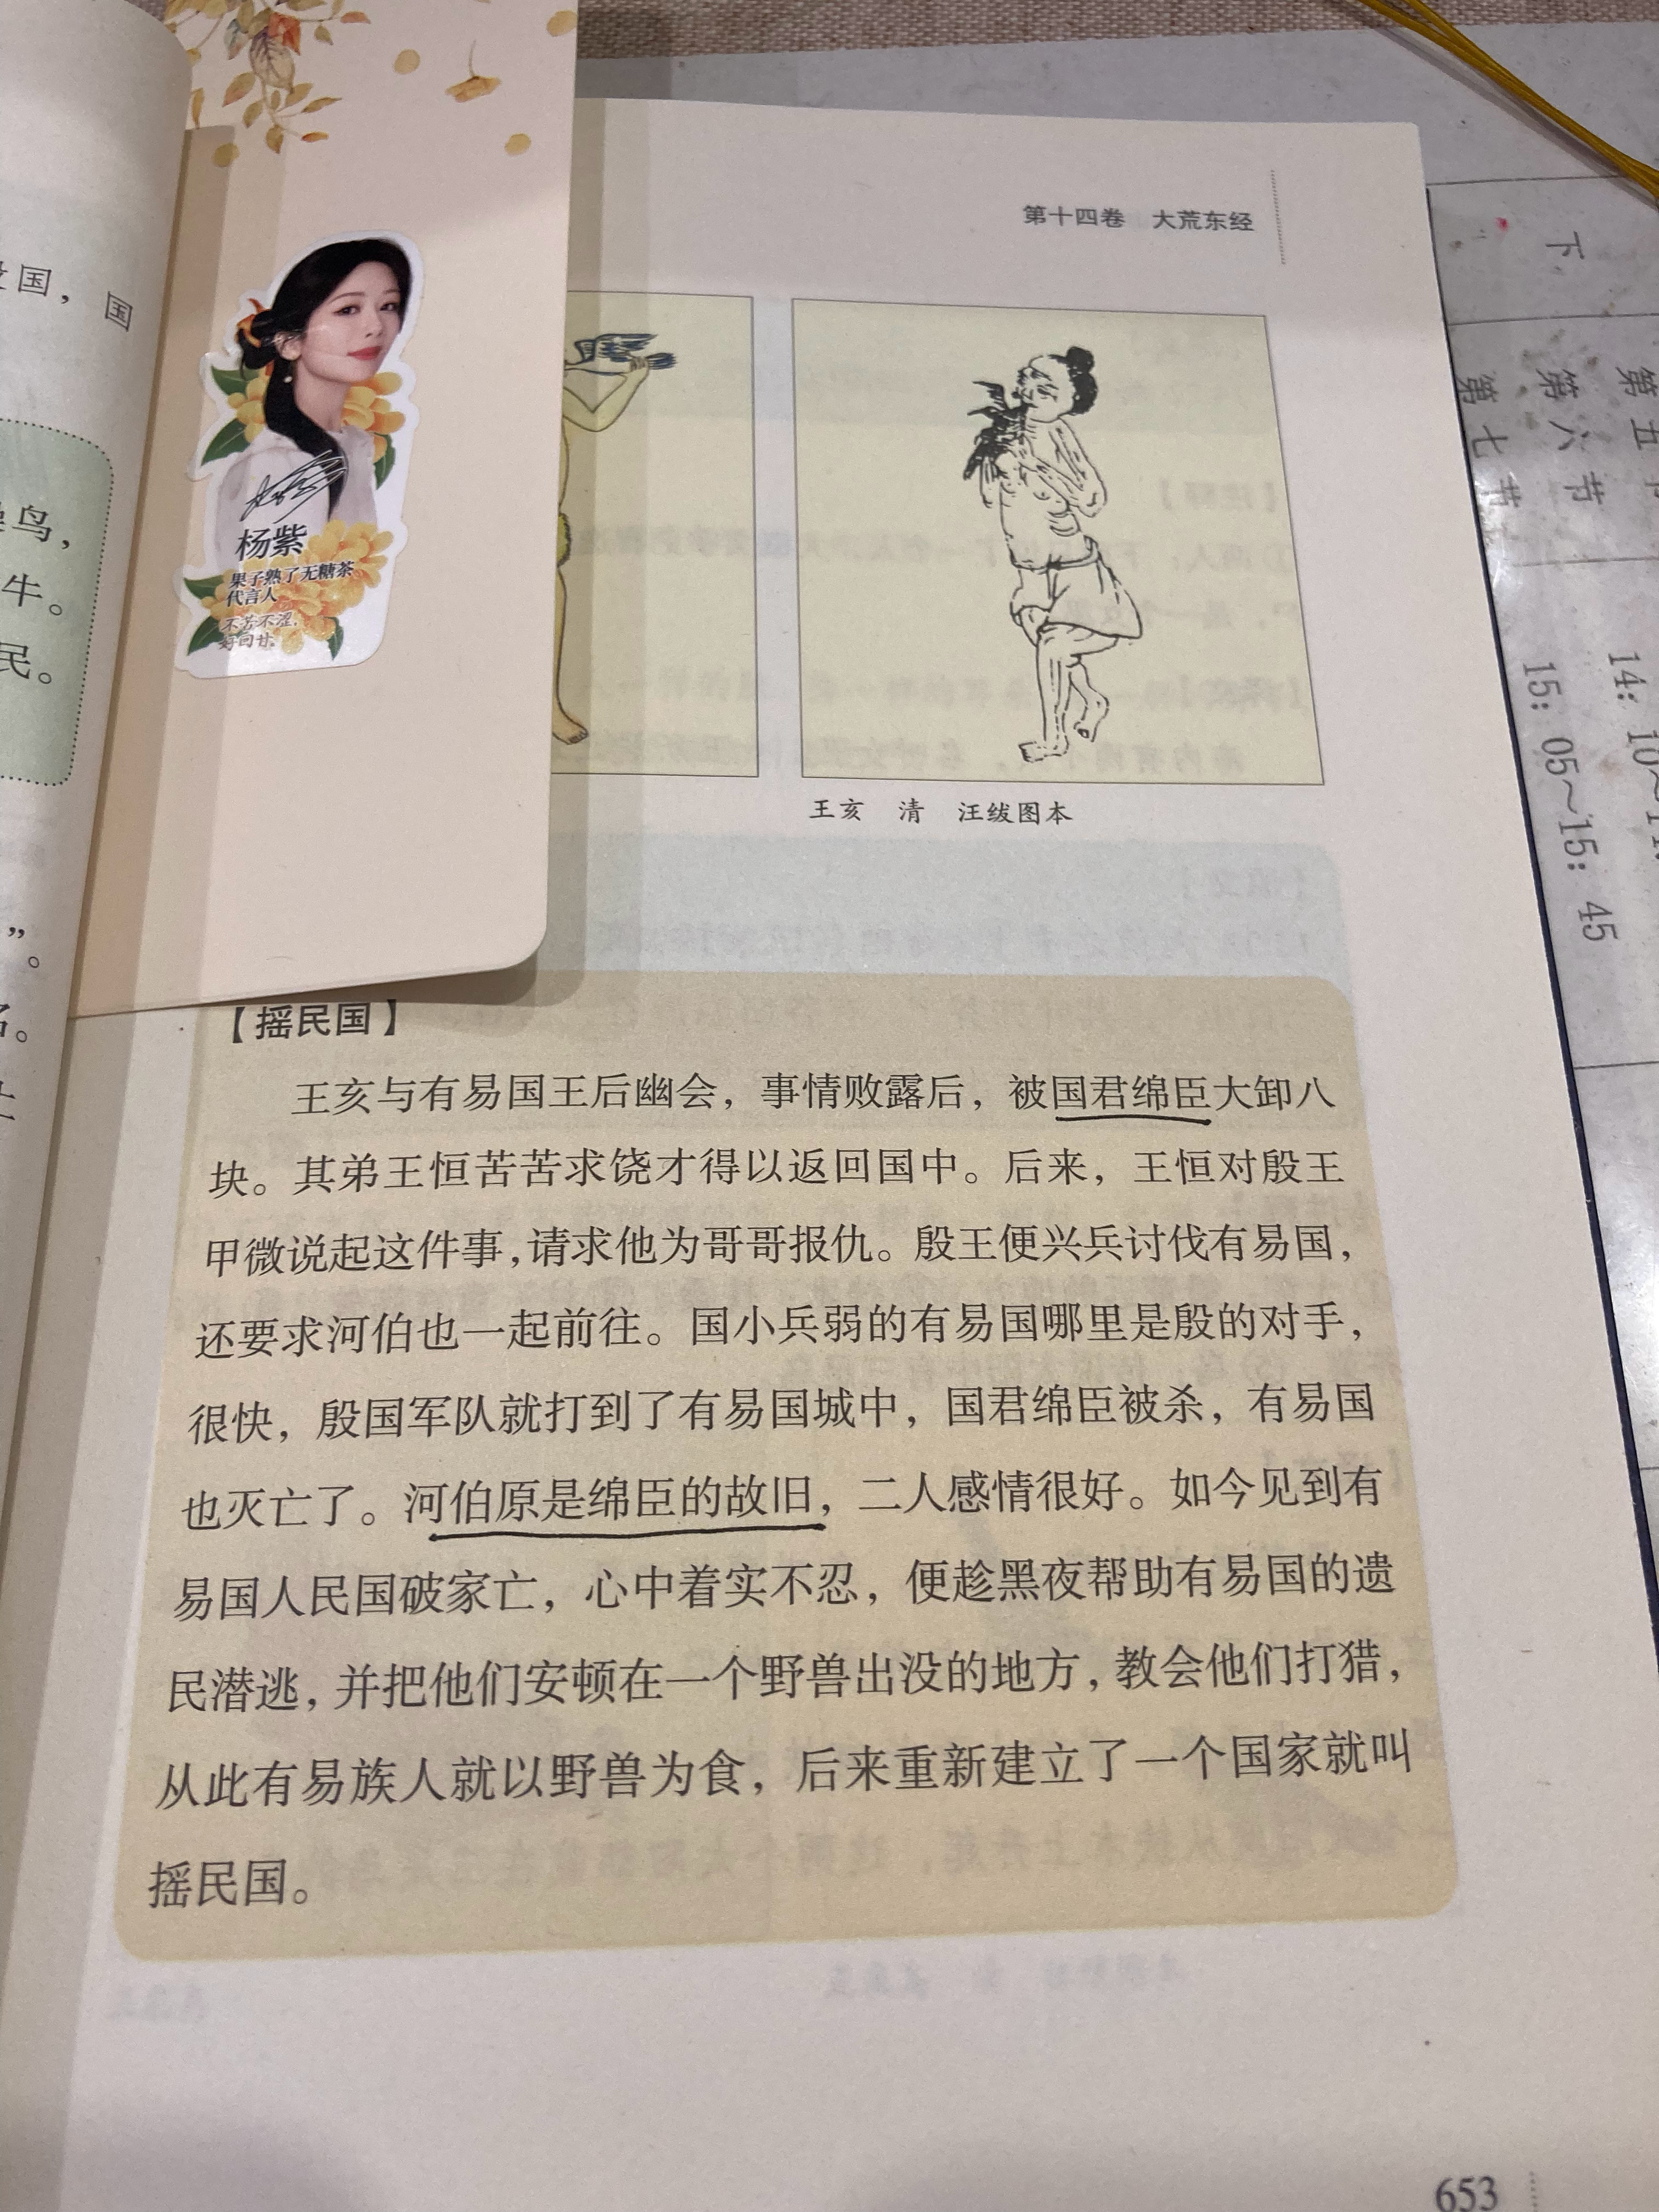 国，国
鸟，
牛。
民。
”。
。
杨紫
果子熟了无糖茶
代言人
不苦不涩，
好回甘。
第十四卷 大荒东经
王亥 清 汪绂图本
【摇民国】
王亥与有易国王后幽会，事情败露后，被国君绵臣大卸八
块。其弟王恒苦苦求饶才得以返回国中。后来，王恒对殷王
甲微说起这件事，请求他为哥哥报仇。殷王便兴兵讨伐有易国，
还要求河伯也一起前往。国小兵弱的有易国哪里是殷的对手，
很快，殷国军队就打到了有易国城中，国君绵臣被杀，有易国
也灭亡了。河伯原是绵臣的故旧，二人感情很好。如今见到有
易国人民国破家亡，心中着实不忍，便趁黑夜帮助有易国的遗
民潜逃，并把他们安顿在一个野兽出没的地方，教会他们打猎，
从此有易族人就以野兽为食，后来重新建立了一个国家就叫
摇民国。
653
下
第五节
第六节 14：10～
第七节 15：05～15：45